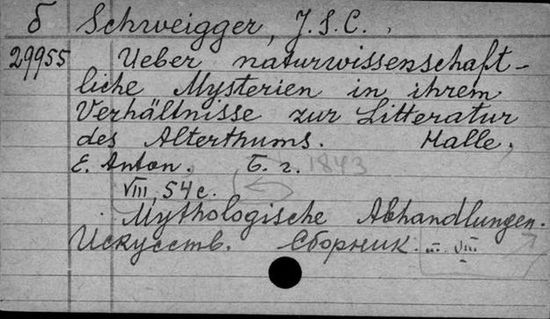 б Schweigger, J. S. C.,
29955 Ueber naturwissenschaft-
liche Mysterien in ihrem
Verhältnisse zur Litteratur
des Alterthums. Halle,
E. Anton. Б. г. 1843
VIII, 54 с.
Mythologische Abhandlungen.
Искусств. Сборник. III. VIII